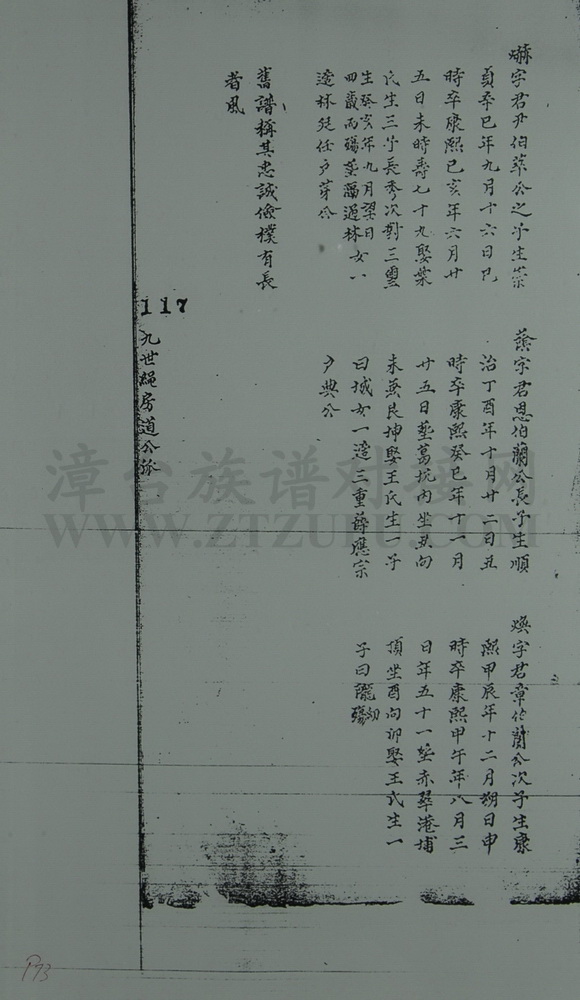 爀字君尹伯華公之子生崇
貞辛巳年九月十六日巳
時卒康熙己亥年六月廿
五日未時壽七十九娶葉
氏生三子長秀次對三璺
生癸亥年九月望日
四歲而殤葬過林女一
適林廷任戶芽公
舊譜稱其忠誠儉樸有長
者風
字君恩伯蘭公長子生順
治丁酉年十月廿二日丑
時卒康熙癸巳年十一月
廿五日葬葛坑內坐丑向
未兼艮坤娶王氏生一子
曰城女一適三重薛應宗
戶典公
煥字君章伯蘭公次子生康
熙甲辰年十二月朔日申
時卒康熙甲午年八月三
日年五十一葬赤翠港埔
頂坐酉向卯娶王氏生一
子曰龍幼殤
117
九世繩房道公派
漳台族谱对接网
WWW.ZTZUPU.COM
P73